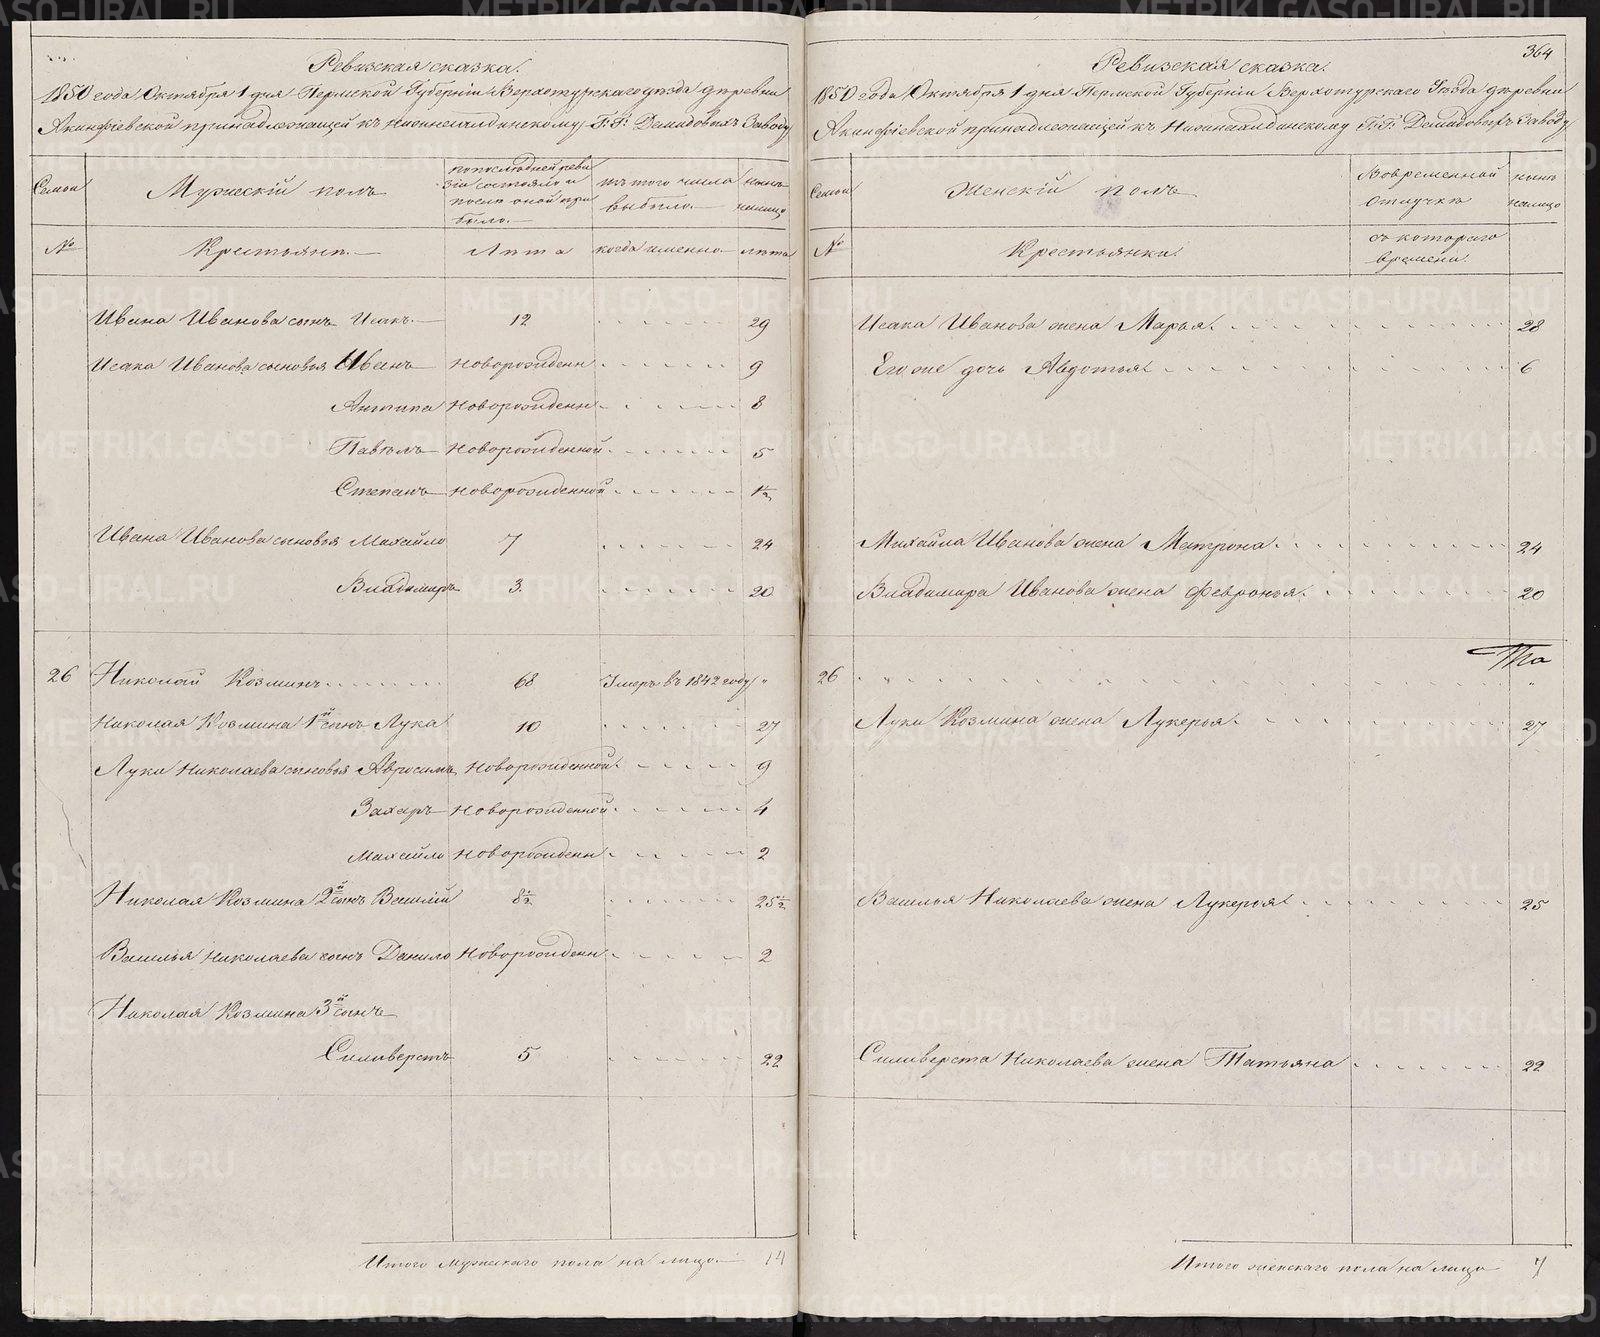 Ревизская сказка.
1850 года Октября 1 дня Пермской Губернiи Верхотурскаго уѣзда деревни
Акинфiевской принадлежащей къ Нижнесалдинскому Г.Г. Демидовыхъ Заводу
Семьи
Мужескiй полъ
по последней реви
зiи состояло и
после оной при
было.
изъ того числа
выбыло.
нынѣ
налицо
№
Крестьяне.
Лѣта
когда именно
лѣта
Ивана Иванова сынъ Исакъ. 12 29
Исака Иванова сыновья Иванъ новорожденн 9
Антипа новорожденн 8
Павелъ новорожденной 5
Степанъ новорожденной 1½
Ивана Иванова сыновья Михайло 7 24
Владимиръ 3. 20
26 Николай Козминъ 68 Умеръ въ 1842 году "
Николая Козмина 1й сынъ Лука 10 27
Луки Николаева сыновья Абросимъ новорожденной 9
Захаръ новорожденной 4
Михайло новорожденн 2
Николая Козмина 2й сынъ Василiй 8½ 25½
Василья Николаева сынъ Данило новорожденн 2
Николая Козмина 3й сынъ
Силиверстъ 5 22
Итого мужескаго пола на лицо 14
364
Ревизская сказка.
1850 года Октября 1 дня Пермской Губернiи Верхотурскаго Уѣзда деревни
Акинфiевской принадлежащей къ Нижнесалдинскому Г.Г. Демидовыхъ Заводу
Семьи
Женскiй полъ
Вовременной
отлучке
нынѣ
налицо
№
Крестьянки.
съ котораго
времени.
Исака Иванова жена Марья 28
Его же дочь Авдотья 6
Михайла Иванова жена Матрона 24
Владимира Иванова жена Февронья 20
26 "
Луки Козмина жена Лукерья 27
Василья Николаева жена Лукерья 25
Силиверста Николаева жена Татьяна 22
Итого женскаго пола на лицо 7
METRIKI.GASO-URAL.RU